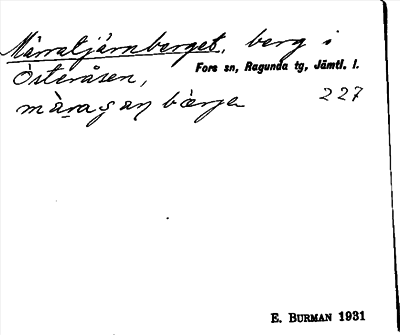 Märratjärnberget, berg i
Österåsen, Fors sn, Ragunda tg, Jämtl. l.
màragan bærje 227
E. BURMAN 1931